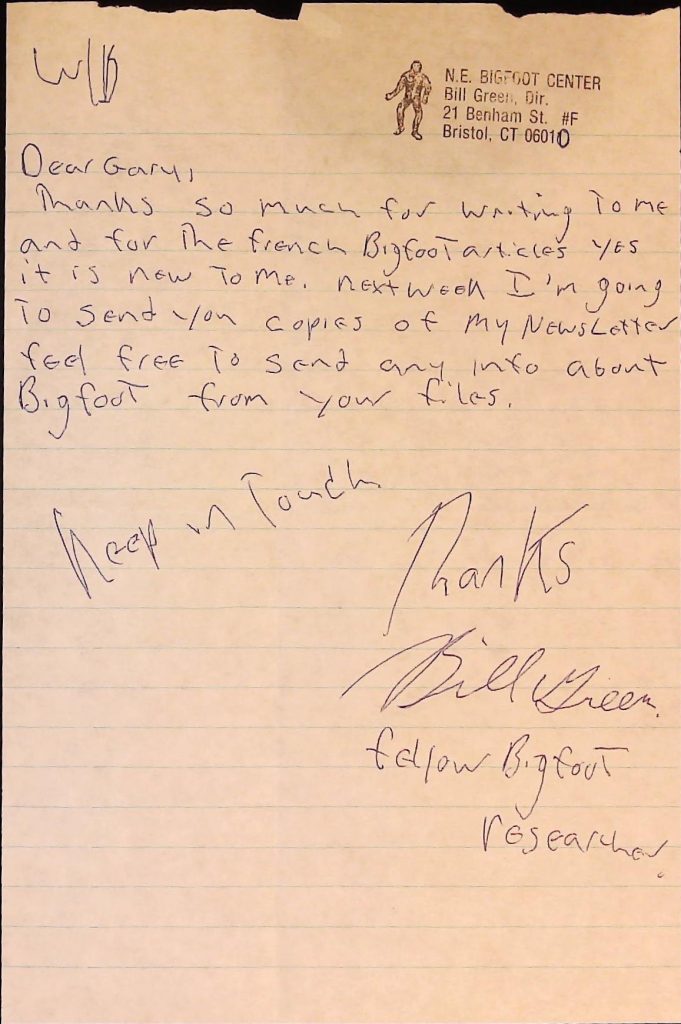 N.E. BIGFOOT CENTER
Bill Green, Dir.
21 Benham St. #F
Bristol, CT 06010
Dear Gary,
Thanks so much for writing To me
and for The french Bigfoot articles yes
it is new To me. next week I'm going
To send you copies of my Newsletter
feel free To send any info about
Bigfoot from your files.
Keep in Touch.
Thanks
Bill Green.
fellow Bigfoot
researcher.